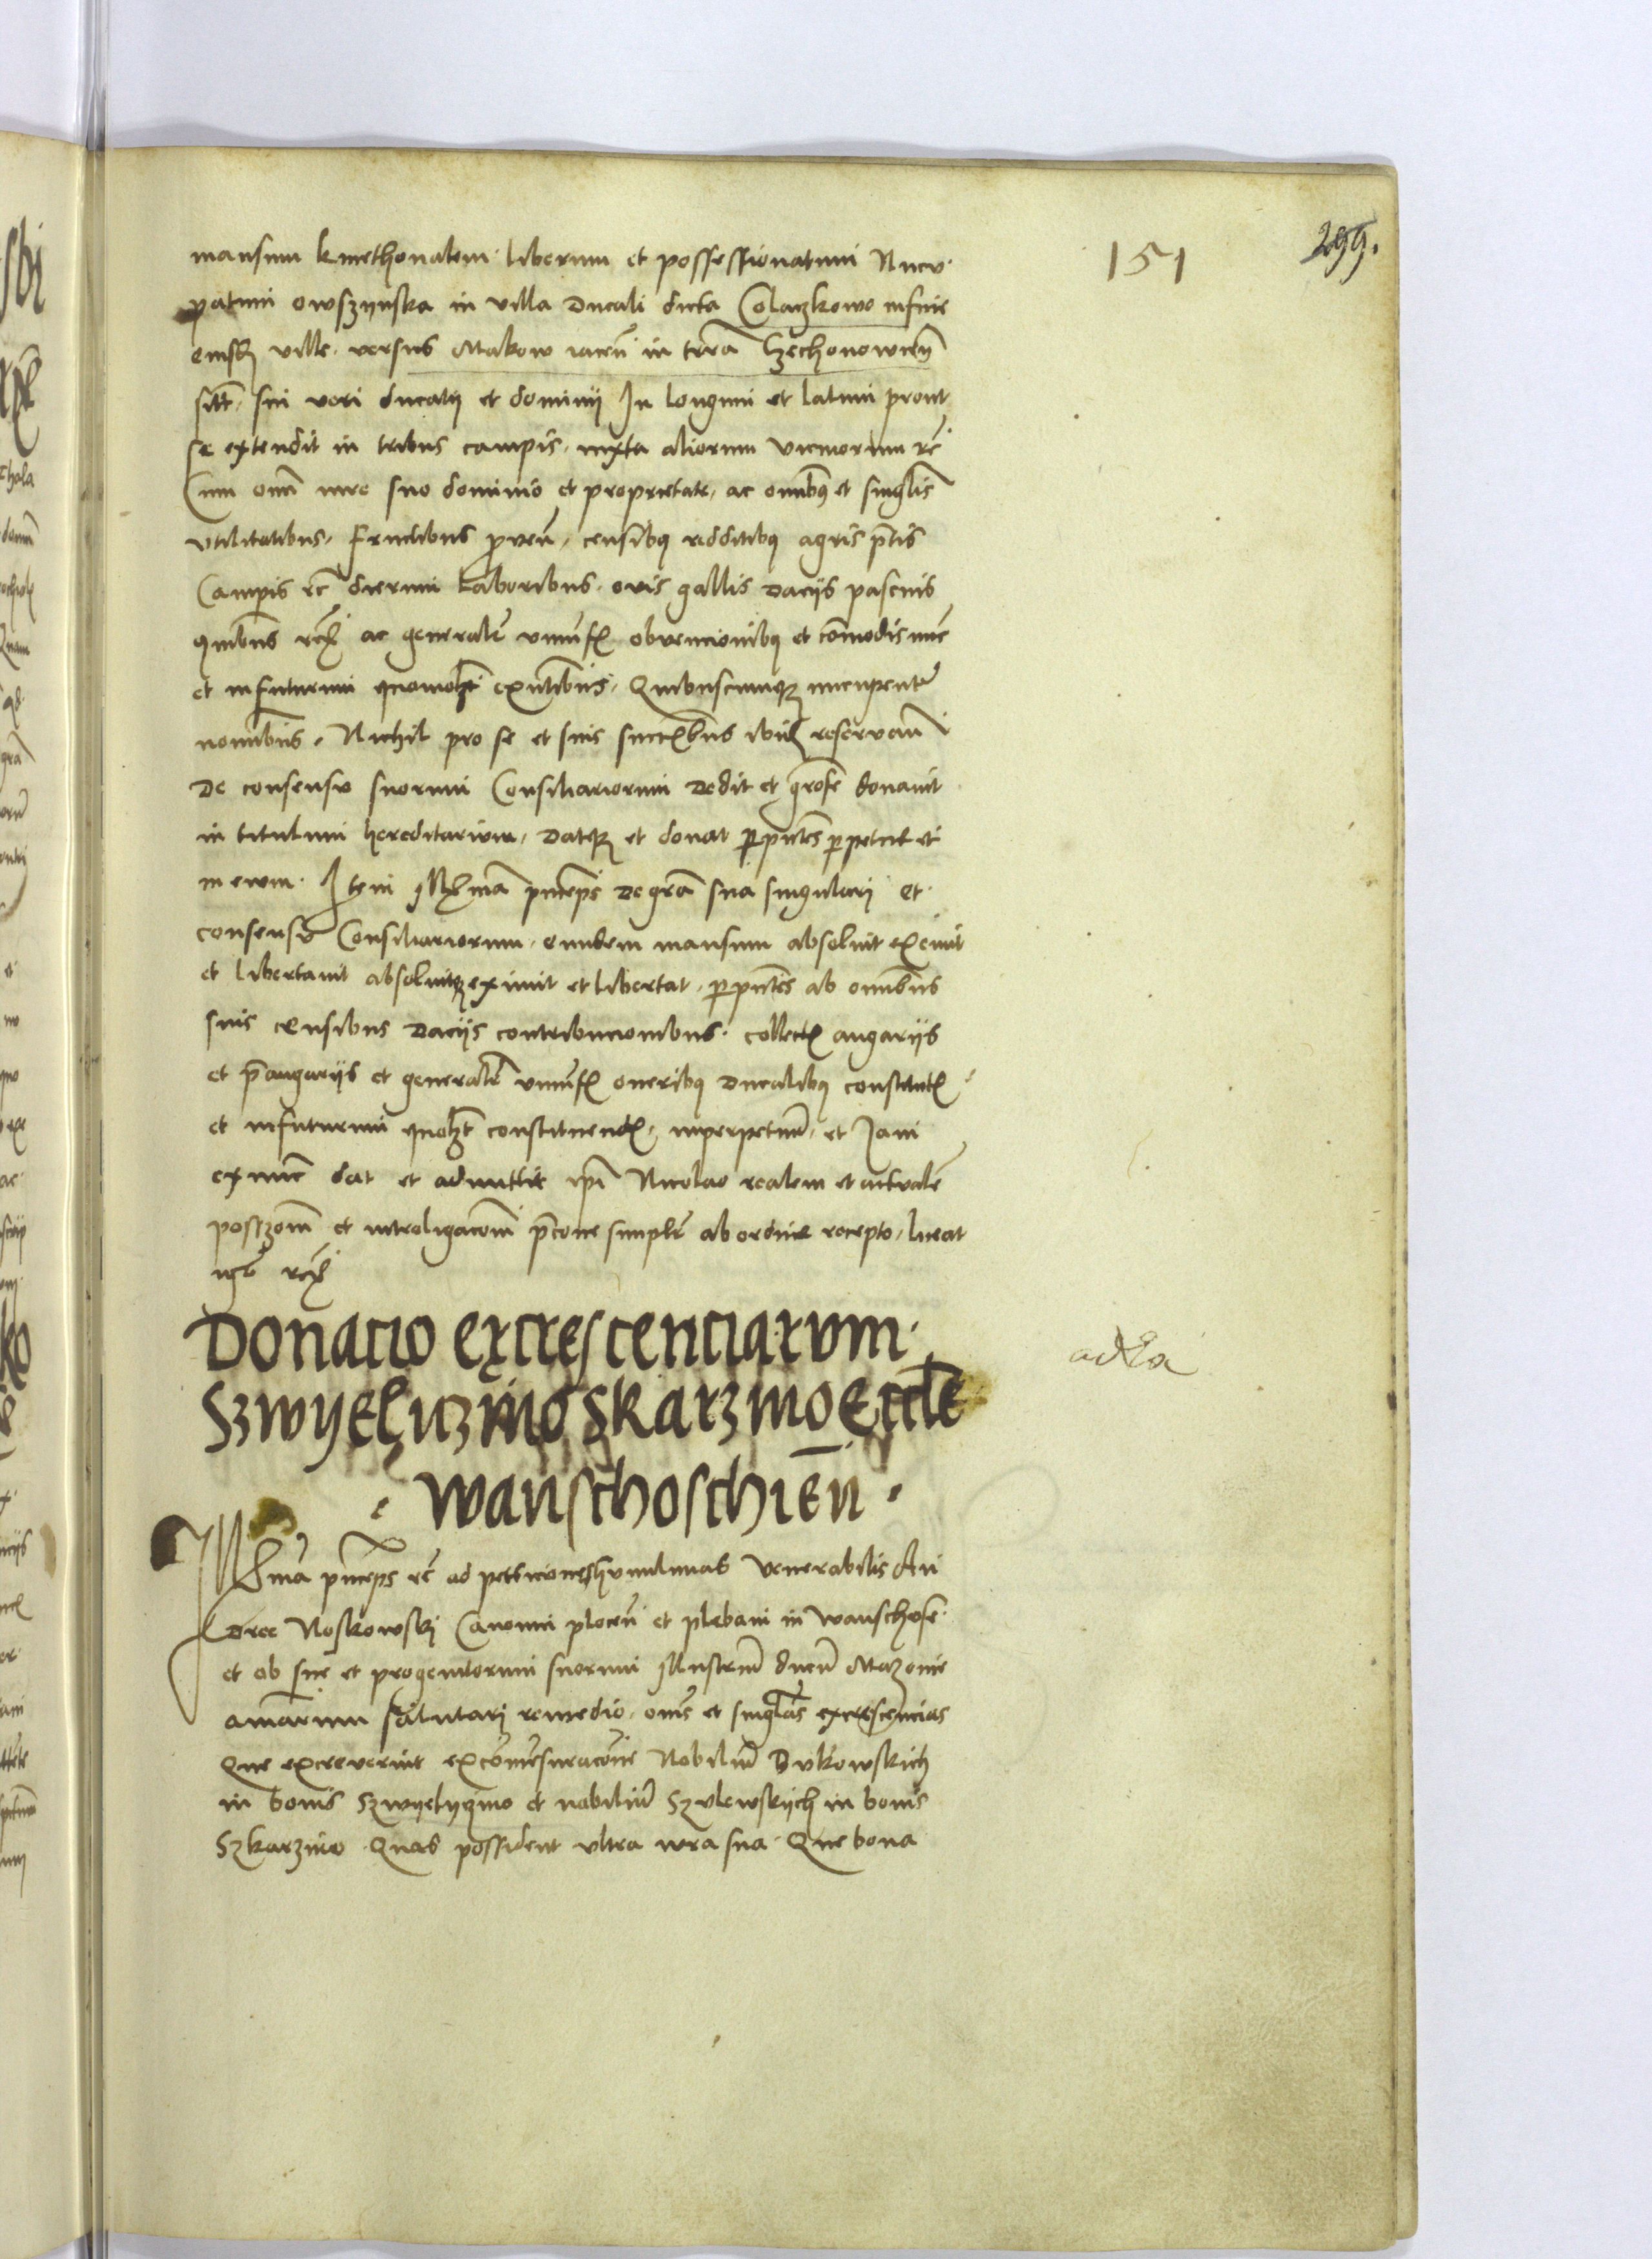 151
299.
mansum kmethonalem liberum et possessionatum Nucu
patum owszynska in villa Ducali dicta Colaczkowo in fine
eiusdem ville versus Makow iacen in terra Czechonowien
sitt sui veri ducatus et dominij In longum et latum prout
se extendit in tribus campis iuxta aliorum vicinorum etc
Cum omni iure suo dominio et proprietate ac omnibus et singulis
vtilitatibus fructibus proven censibus redditibus agris pratis
Campis etc dierum laboribus ovis gallis Dacijs pascuis
quibus ac generaliter vniuersis obvencionibus et comodis nunc
et in futurum quomolibet existentibus Quibuscumque nuncupentur
nominibus Nichil pro se et suis successoribus ibidem reservan
De consensu suorum Consiliariorum Dedit et grose donavit
in titulum hereditarium Datque et donat per presentes perpetue et
in ewm Item Illma princeps De gracia sua singulari et
consensu Consiliariorum eundem mansum absoluit exemit
et libertauit absoluitque eximit et libertat per presentes ab omnibus
suis censibus Dacijs contribucionibus collectis angarijs
et preangarijs et generaliter vniuersis oneribus Ducalibus constitutis
et in futurum quolibet constituendis inperpetuum et Iam
ex nunc dat et admittit ipsi Nicolao realem et actualem
possessionem et intreligacionem precone simplici ab ordine recepto liceat

Donacio excrescenciarvm
Szwyelyczyno Skarzino Eccle
Wanschoschien
Illma princeps etc ad peticiones humilimas Venerabilis An
Dree Noskowskj Canonici plocen et plebani in Wanschose
et ob sue et progenitorum suorum Illustrium ducum Mazouie
animarum salutarj remedio omnes et singulas excrescencias
Que excreverint ex comensuracione Nobilium Bukowskich
in bonis Szwyelyczino et nobilium Szulewskych in bonis
Szkarzino Quas possident vltra iura sua Que bona